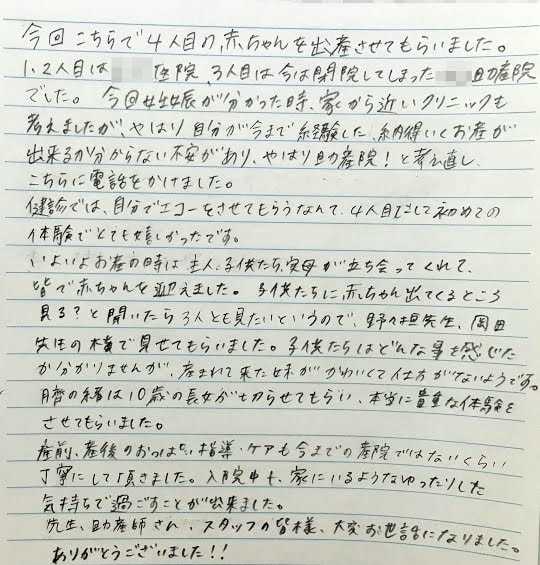 今回こちらで4人目の赤ちゃんを出産させてもらいました。
1、2人目は 医院、3人目は今は閉院してしまった 助産院
でした。 今回妊娠が分かった時、家から近いクリニックも
考えましたが、やはり自分が今まで経験した、納得いくお産が
出来るか分からない不安があり、やはり助産院!と考え直し、
こちらに電話をかけました。
健診では、自分でエコーをさせてもらうなんて、4人目にして初めての
体験でとても嬉しかったです。
いよいよお産の時は主人、子供たち、実母が立ち会ってくれて、
皆で赤ちゃんを迎えました。子供たちに赤ちゃん出てくるところ
見る?と聞いたら3人とも見たいというので、野々垣先生、岡田
先生の横で見せてもらいました。子供たちはどんな事を感じた
か分かりませんが、産まれて来た妹がかわいくて仕方がないようです。
臍の緒は10歳の長女が切らせてもらい、本当に貴重な体験を
させてもらいました。
産前、産後のおっぱい指導・ケアも今までの産院ではないくらい
丁寧にして頂きました。入院中も、家にいるようなゆったりした
気持ちで過ごすことが出来ました。
先生、助産師さん、スタッフの皆様、大変お世話になりました。
ありがとうございました!!